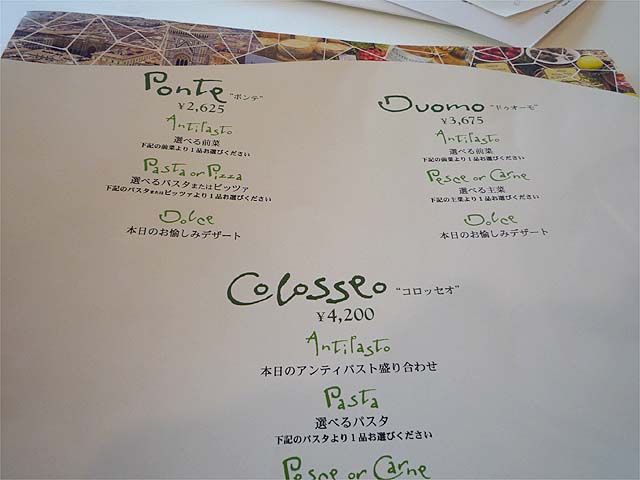 Ponte "ポンテ"
¥2,625
Antipasto
選べる前菜
下記の前菜より1品お選びください
Pasta or Pizza
選べるパスタまたはピッツァ
下記のパスタまたはピッツァより1品お選びください
Dolce
本日のお愉しみデザート
Duomo "ドゥオーモ"
¥3,675
Antipasto
選べる前菜
下記の前菜より1品お選びください
Pesce or Carne
選べる主菜
下記の主菜より1品お選びください
Dolce
本日のお愉しみデザート
Colosseo "コロッセオ"
¥4,200
Antipasto
本日のアンティパスト盛り合わせ
Pasta
選べるパスタ
下記のパスタより1品お選びください
Pesce or Carne